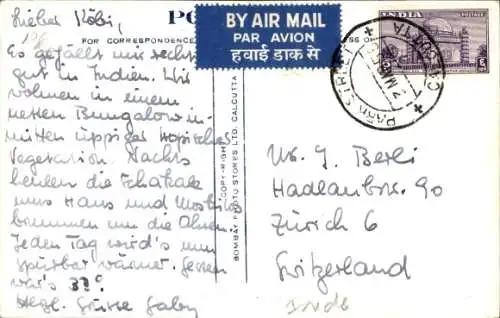 Lieber Köbi,
Es gefällt mir sehr
gut in Indien. Wir
wohnen in einem
netten Bungalow in-
mitten üppiger tropischer
Vegetation. Nachts
heulen die Schakale
ums Haus und Moskitos
brummen um die Ohren.
Jeden Tag wird's nun
spürbar wärmer. Gestern
war's 33°.
Herzl. Grüsse Gaby
PO
FOR CORRESPONDENCE
BY AIR MAIL
PAR AVION
हवाई डाक से
SS O
INDIA
PARK STREET
CALCUTTA
(COPY-RIGHT)
BOMBAY PHOTO STORES LTD. CALCUTTA
J. Berli
Hadlaubstr. 90
Zürich 6
Switzerland
Inde